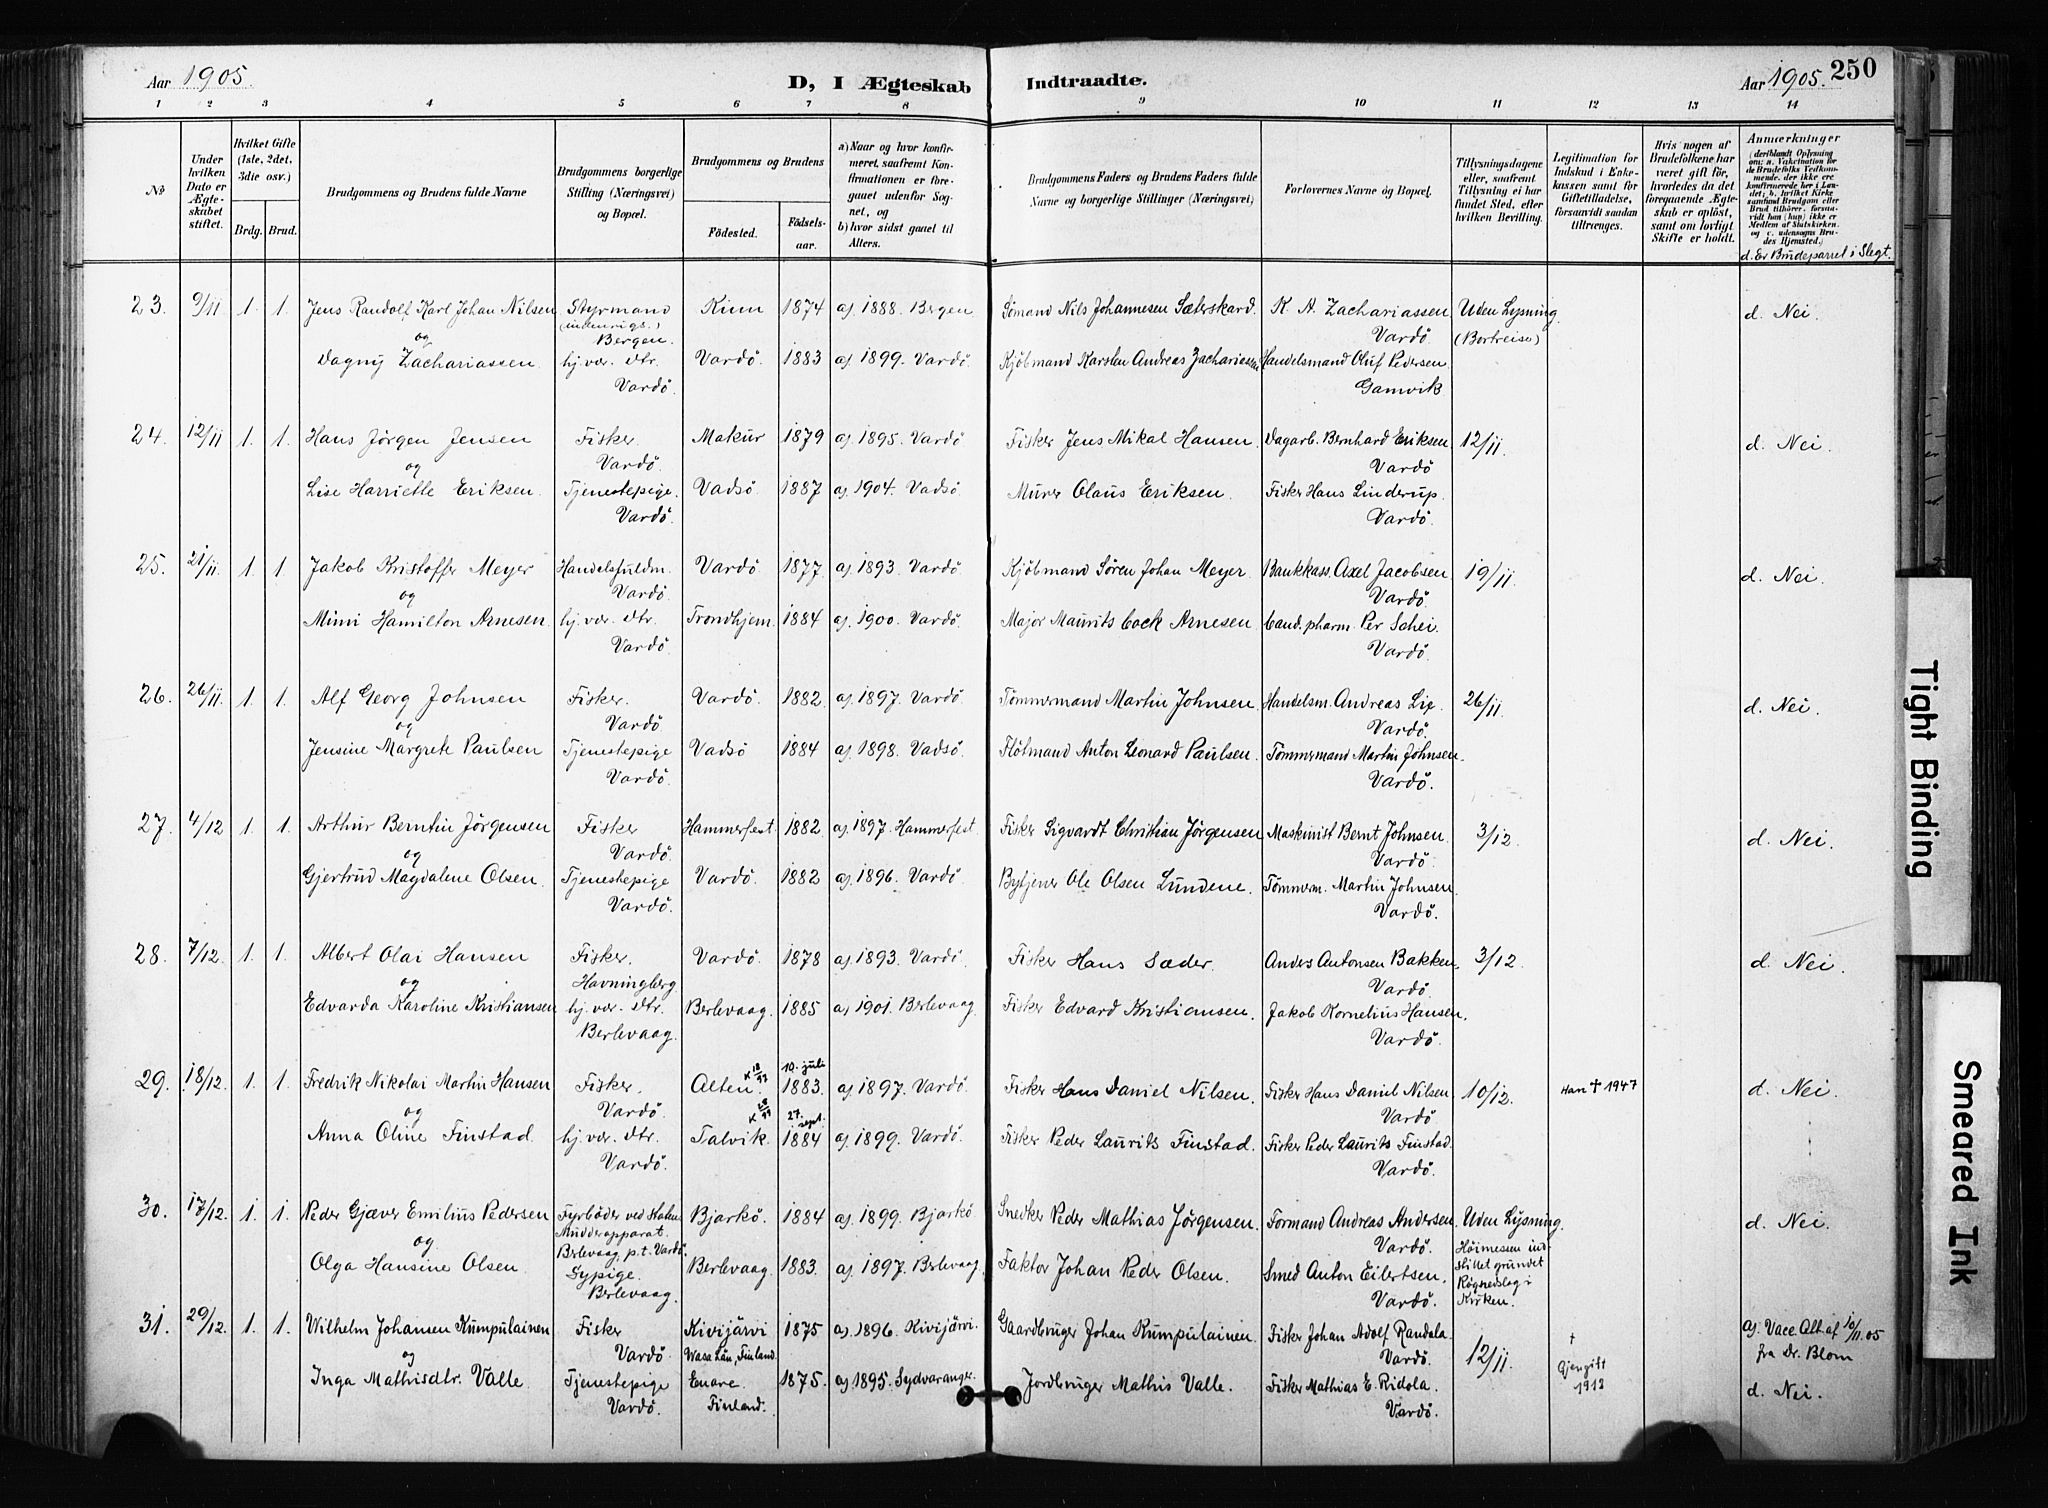 Aar 1905.
D, I Ægteskab Indtraadte.
Aar 1905. 250
1 2 3 4 5 6 7 8 9 10 11 12 13 14
No
Under hvilken Dato er Ægteskabet stiftet.
Hvilket Gifte (1ste, 2det, 3die osv.)
Brdg. Brud.
Brudgommens og Brudens fulde Navne
Brudgommens borgerlige Stilling (Næringsvei) og Bopæl.
Brudgommens og Brudens
Födested. Födsels-aar.
a) Naar og hvor konfirmeret, saafremt Konfirmationen er foregaaet udenfor Sognet, og
b) hvor sidst gaaet til Alters.
Brudgommens Faders og Brudens Faders fulde Navne og borgerlige Stillinger (Næringsvei)
Forlovernes Navne og Bopæl.
Tillysningsdagene eller, saafremt Tillysning ei har fundet Sted, efter hvilken Bevilling.
Legitimation for Indskud i Enkekassen samt for Giftetilladelse, forsaavidt saadan tiltrænges.
Hvis nogen af Brudefolkene har været gift för, hvorledes da det foregaaende Ægteskab er oplöst, samt om lovligt Skifte er holdt.
Anmærkninger (deriblandt Oplysning om: a. Vakcination for de Brudefolks Vedkommende, der ikke ere konfirmerede her i Landet; b. hvilket Kirkesamfund Brudgom eller Brud tilhörer, forsaavidt han (hun) ikke er Medlem af Statskirken. og c. udensogns Brudes Hjemsted.)
d. Er Brudeparret i Slegt.
23. 9/11 1. 1. Jens Randolf Karl Johan Nilsen Styrmand Kinn 1874 a). 1888. Bergen Sømand Nils Johannesen Sæterskard. K. A. Zachariassen Uden Lysning. d. Nei.
og (indenrigs.) Bergen. Vardö. (Bortreise)
Dagny Zachariassen hj. vær. dtr. Vardö. 1883 a). 1899. Vardö. Kjöbmand Karsten Andreas Zachariassen Handelsmand Oluf Pedersen
Vardö. Gamvik
24. 12/11 1. 1. Hans Jörgen Jensen Fisker. Makur 1879 a). 1895. Vardö Fisker Jens Mikal Hansen. Dagarb. Bernhard Eriksen 12/11. d. Nei.
og Vardö. Vardö
Lise Harriette Eriksen. Tjenestepige. Vadsö. 1887 a). 1904. Vadsö. Murer Olaus Eriksen. Fisker Hans Linderup.
Vardö. Vardö.
25. 21/11. 1. 1. Jakob Kristoffer Meyer Handelsfuldm. Vardö. 1877. a). 1893. Vardö. Kjöbmand Sören Johan Meyer. Bankkass. Axel Jacobsen 19/11. d. Nei.
og Vardö. Vardö.
Mimi Hamilton Arnesen. hj. vær. dtr. Trondhjem. 1884 a). 1900. Vardö. Major Maurits Cock Arnesen Cand. pharm. Per Schei.
Vardö. Vardö.
26. 26/11. 1. 1. Alf Georg Johnsen Fisker. Vardö. 1882. a). 1897. Vardö. Tömmermand Martin Johnsen. Handelsm. Andreas Lie. 26/11. d. Nei.
og Vardö. Vardö.
Jensine Margrete Paulsen Tjenestepige Vadsö 1884 a). 1898. Vadsö. Flötmand Anton Leonard Paulsen. Tömmermand Martin Johnsen.
Vardö. Vardö.
27. 4/12 1. 1. Arthur Berntin Jörgensen Fisker Hammerfest. 1882. a). 1897. Hammerfest. Fisker Sigvardt Christian Jörgensen Maskinist Bernt Johnsen. 3/12. d. Nei.
og Vardö. Vardö.
Gjertrud Magdalene Olsen. Tjenestepige Vardö. 1882 a). 1896. Vardö. Bytjener Ole Olsen Lundene. Tömmerm. Martin Johnsen.
Vardö. Vardö.
28. 7/12. 1. 1. Albert Olai Hansen Fisker. Vardö. 1878 a). 1893. Vardö. Fisker Hans Sæder. Anders Antonsen Bakken. 3/12. d. Nei.
og Havningberg Vardö.
Edvarda Karoline Kristiansen hj. vær. dtr. Berlevaag. 1885 a) 1901. Berlevaag. Fisker Edvard Kristiansen. Jakob Kornelius Hansen.
Berlevaag. Vardö.
10. juli
29. 18/12. 1. 1. Fredrik Nikolai Martin Hansen Fisker. Alten 1883. a). 1897. Vardö. Fisker Hans Daniel Nilsen. Fisker Hans Daniel Nilsen 10/12. Han † 1947 d. Nei.
og Vardö. 27. sept. Vardö
Anna Oline Finstad. hj. vær. dtr. Talvik 1884 a). 1899. Vardö. Fisker Peder Laurits Finstad. Fisker Peder Laurits Finstad.
Vardö. Vardö.
30. 17/12. 1. 1. Peder Gjæver Emilius Pedersen Fyrböder ved Statens Bjarkö. 1884 a). 1899. Bjarkö. Snedker Peder Mathias Jörgensen. Formand Andreas Andersen. Uden Lysning. d. Nei.
og Mudderapparat. Berlevaag, p.t. Vardö. Vardö. Höimessen ind-
Olga Hansine Olsen. Sypige. Berlevaag 1883. a). 1897. Berlevaag. Faktor Johan Peder Olsen. Smed Anton Eilertsen. stillet grundet
Berlevaag. Vardö. Røgnedslag i Kirken.
31. 29/12. 1. 1. Wilhelm Johansen Kumpulainen Fisker Kivijärvi 1875 a). 1896. Kivijärvi. Gaardbruger Johan Kumpulainen. Fisker Johan Adolf Randala 12/11. † a). Vacc. Alt af 10/11.05
og Vardö. Wasa Län, Finland. Vardö. Gjengift 1912 fra Dr. Blom
Inga Mathisdtr. Valle. Tjenestepige Enare. 1875. a) 1895. Sydvaranger. Jordbruger Mathis Valle. Fisker Mathias E. Ridola. d. Nei.
Vardö. Finland. Vardö.
Tight Binding
Smeared Ink